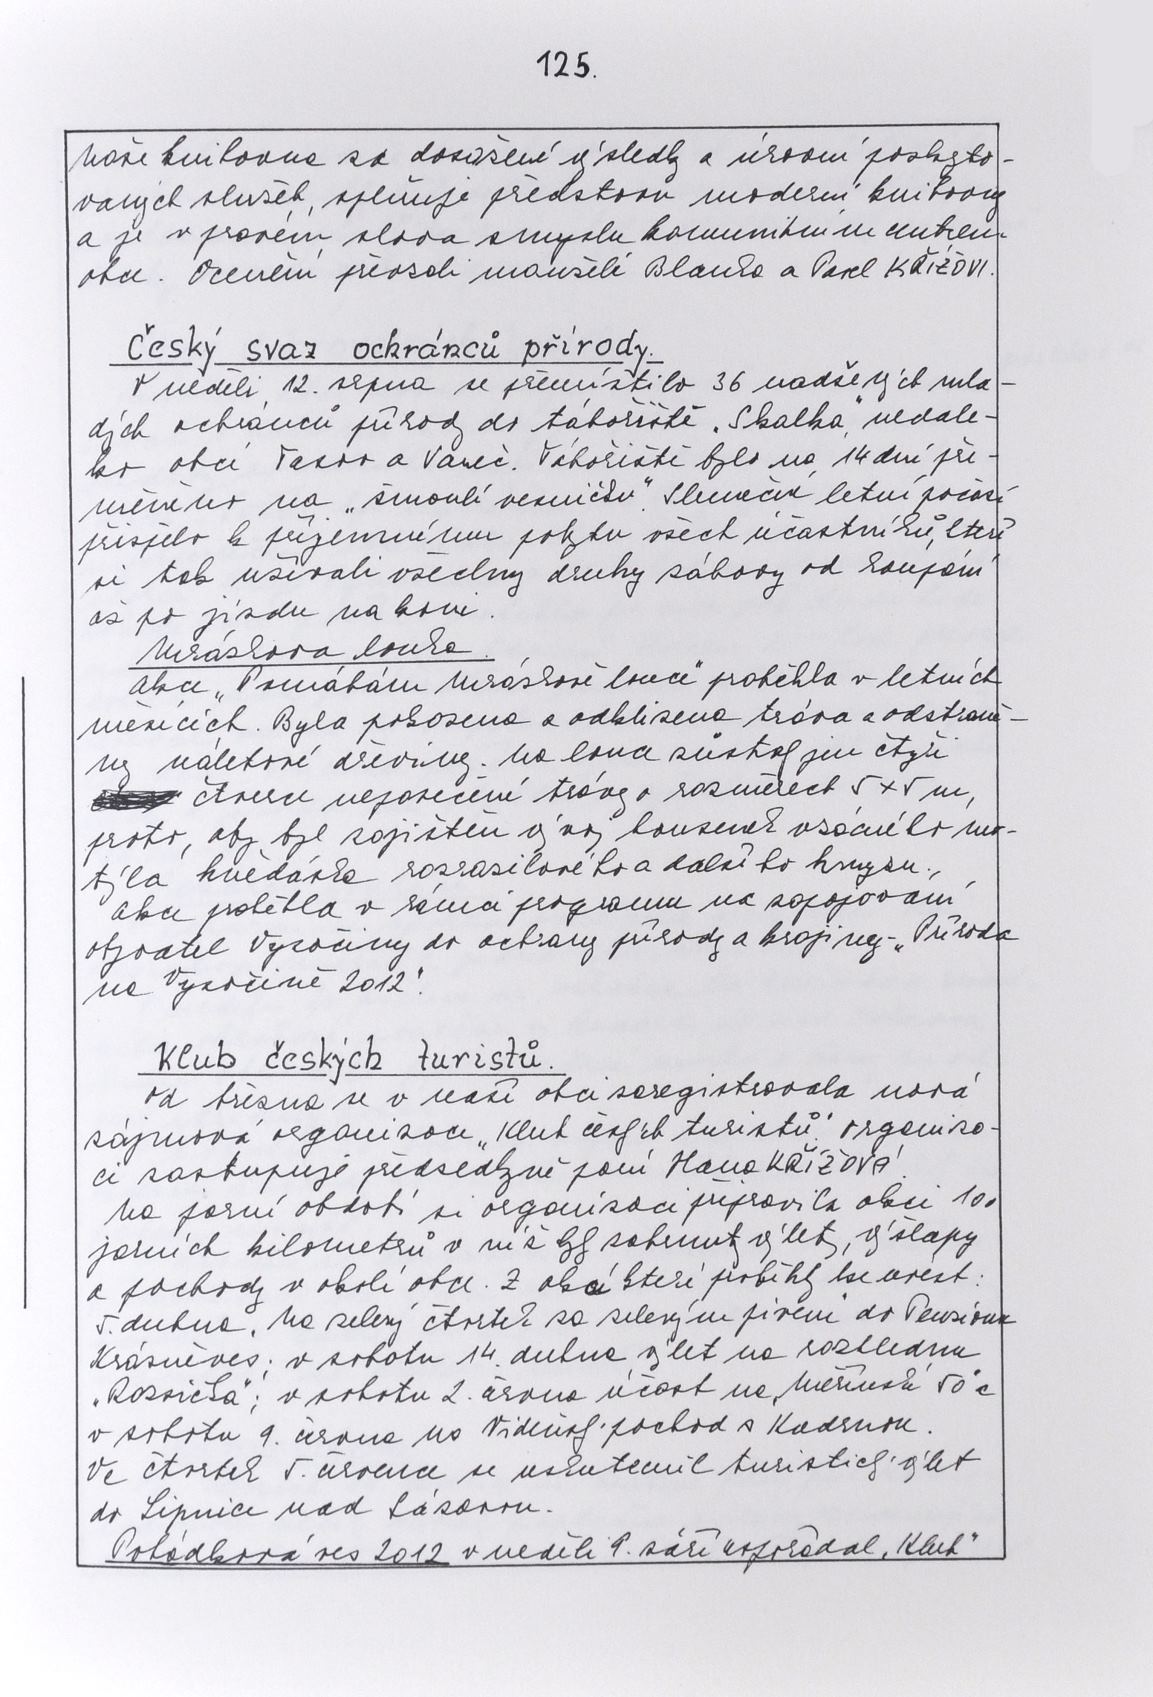 125.
Naše knihovna za dosažené výsledky a úrovní poskyto-
vaných služeb, splňuje představu moderní knihovny
a je v pravém slova smyslu komunitním centrem
obce. Ocenění převzali manželé Blanka a Pavel KŘÍŽOVI.
Český svaz ochránců přírody.
V neděli 12. srpna se přemístilo 36 nadšených mla-
dých ochránců přírody do tábořiště „Skalka" nedale-
ko obcí Tasov a Vaneč. Tábořiště bylo na 14 dní pře-
měněno na „šmoulí vesničku". Slunečné letní počasí
přispělo k příjemnému pobytu všech účastníků, kteří
si tak užívali všechny druhy zábavy od koupání
až po jízdu na koni.
Mrázkova louka.
Akce „Pomáhám Mrázkově louce" proběhla v letních
měsících. Byla pokosena a odklizena tráva a odstraně-
ny náletové dřeviny. Na louce zůstaly jen čtyři
čtverce neposečené trávy o rozměrech 5 x 5 m,
proto, aby byl zajištěn vývoj housenek vzácného mo-
týla hnědáska rozrazilového a dalšího hmyzu.
Akce proběhla v rámci programu na zapojování
obyvatel Vysočiny do ochrany přírody a krajiny - „Příroda
na Vysočině 2012".
Klub českých turistů.
Od března se v naší obci zaregistrovala nová
zájmová organizace „Klub českých turistů". Organiza-
ci zastupuje předsedkyně paní Hana KŘÍŽOVÁ
Na jarní období si organizace připravila akci 100
jarních kilometrů v níž byly zahrnuty výlety, výšlapy
a pochody v okolí obce. Z akcí které proběhly lze uvést:
5. dubna „Na zelený čtvrtek za zeleným pivem" do Pensionu
Krásněves; v sobotu 14. dubna výlet na rozhlednu
„Rosička"; v sobotu 2. června účast na „Měřínské 50" a
v sobotu 9. června na Vídeňský pochod s Kudrnou.
Ve čtvrtek 5. července se uskutečnil turistický výlet
do Lipnice nad Sázavou.
Pohádková ves 2012 v neděli 9. září uspořádal „Klub"